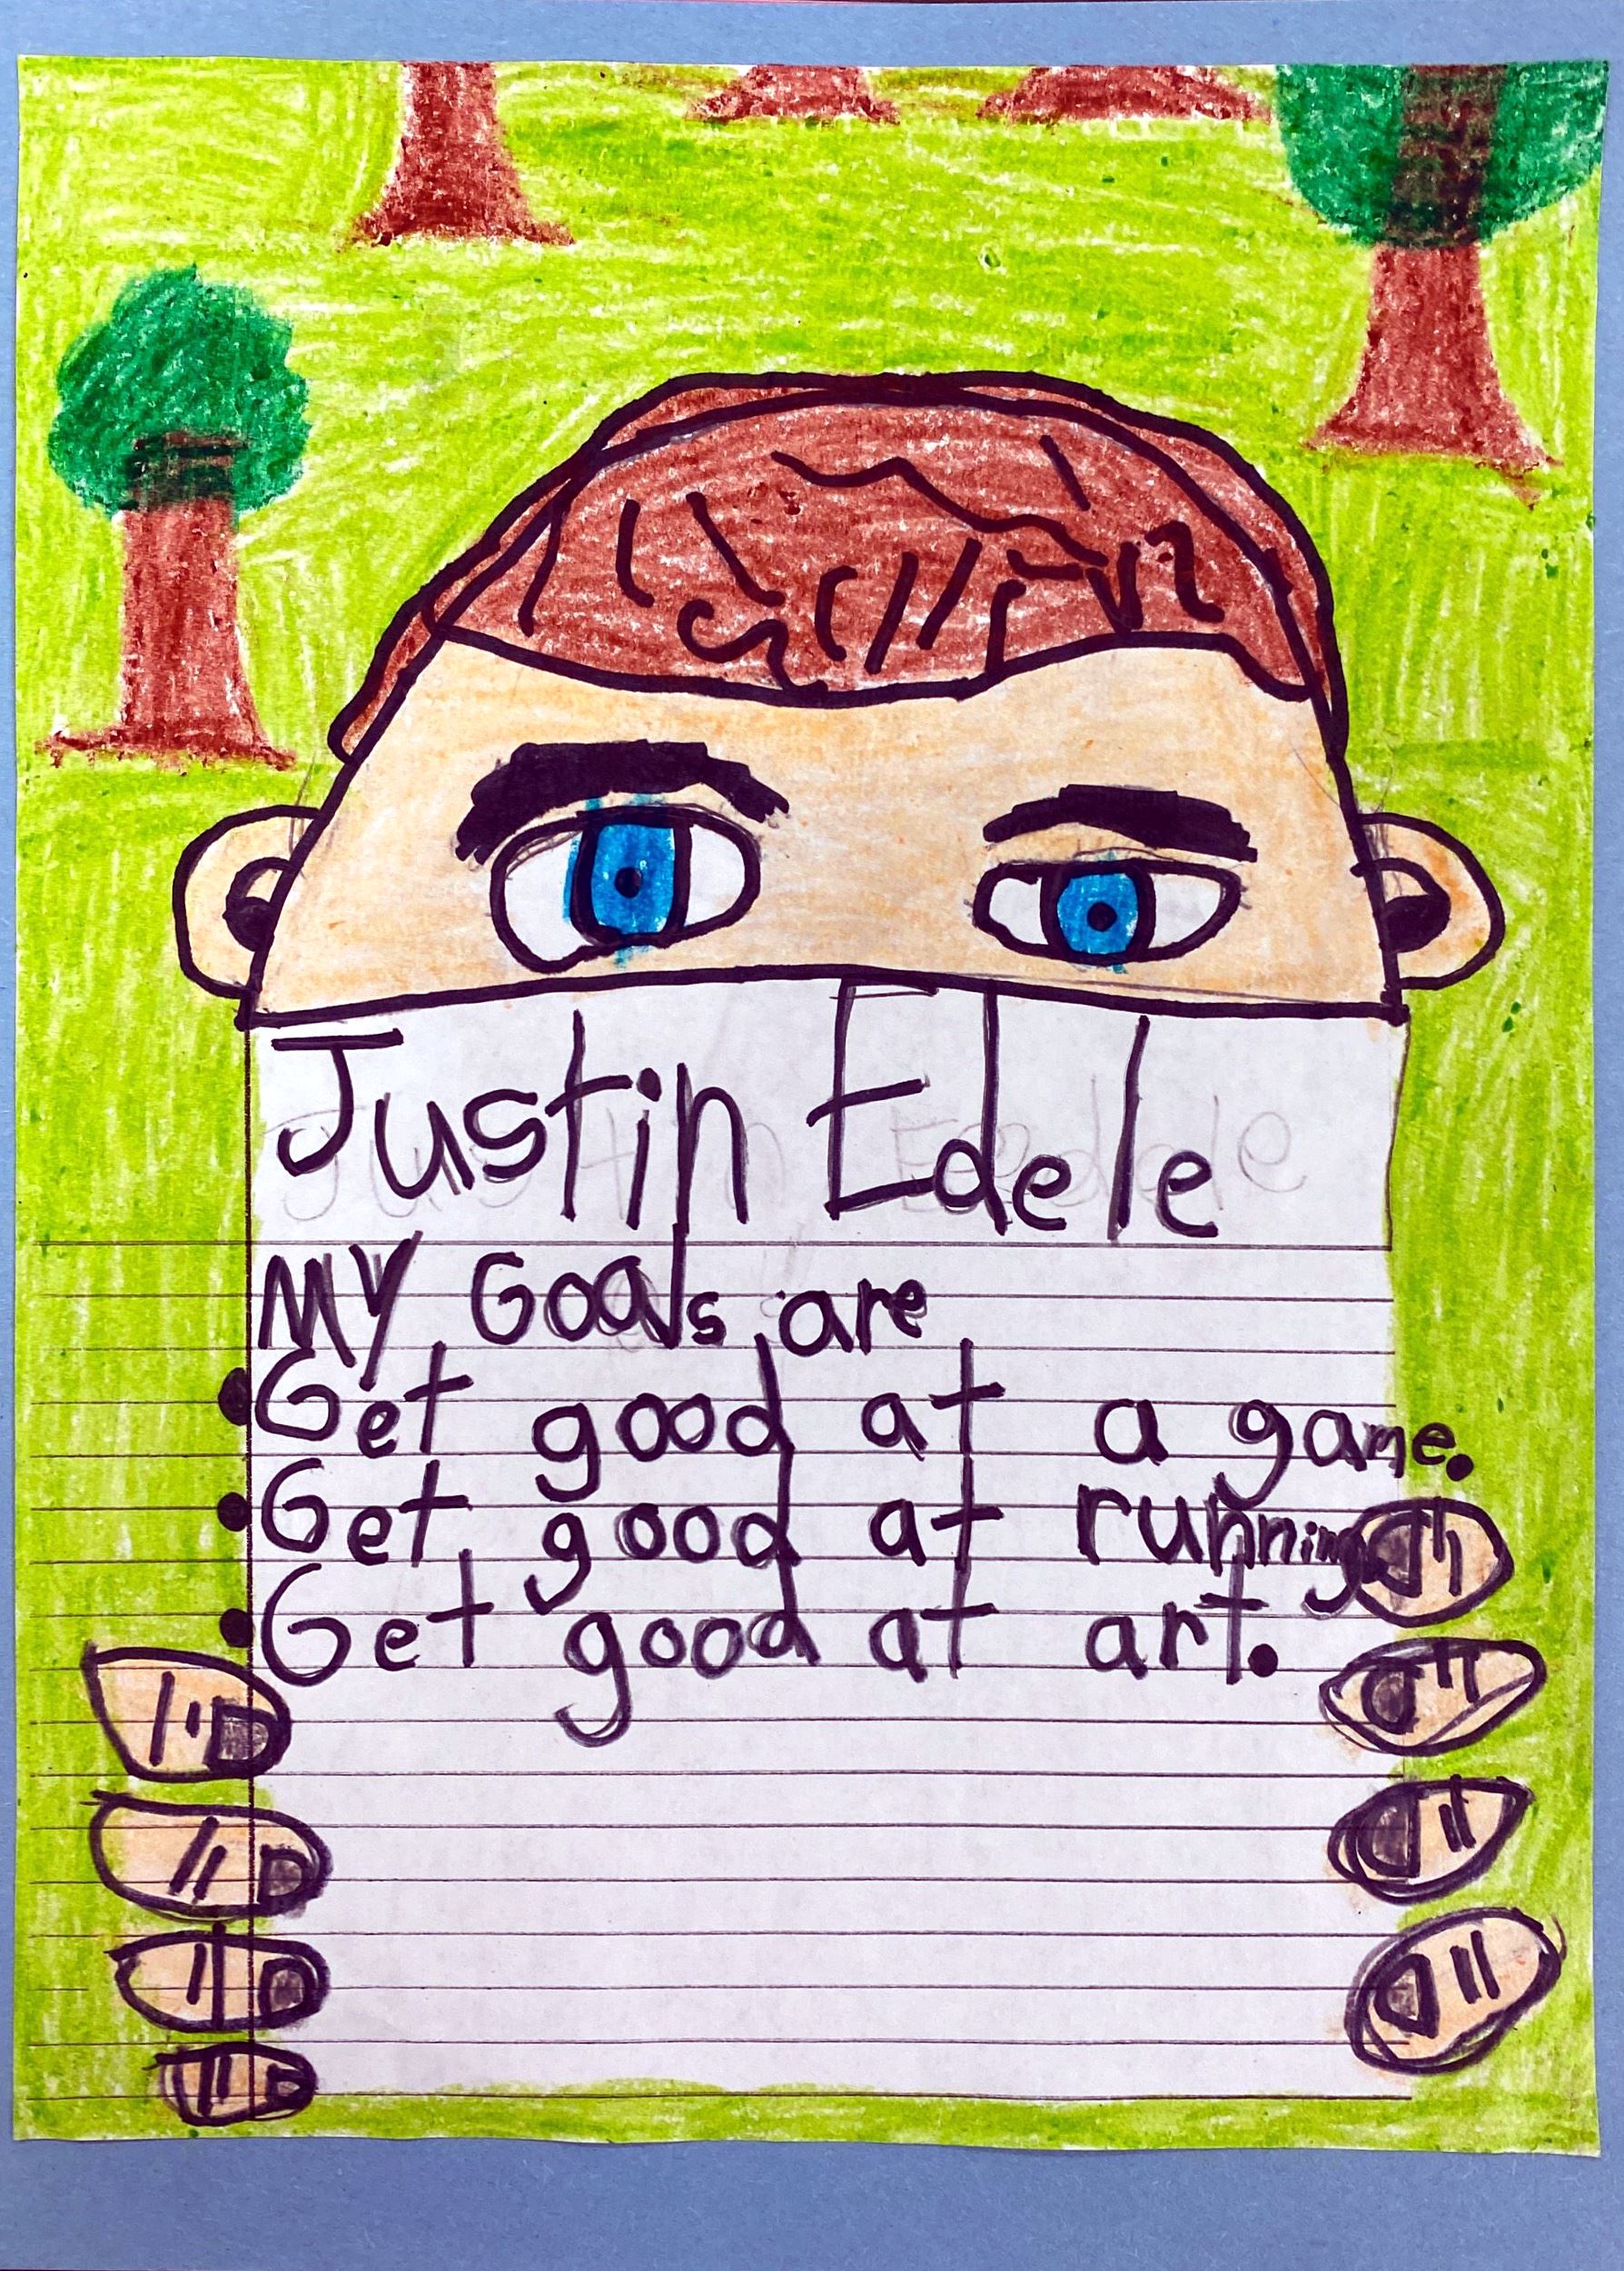 Justin Edele
My Goals are
• Get good at a game.
• Get good at running
• Get good at art.